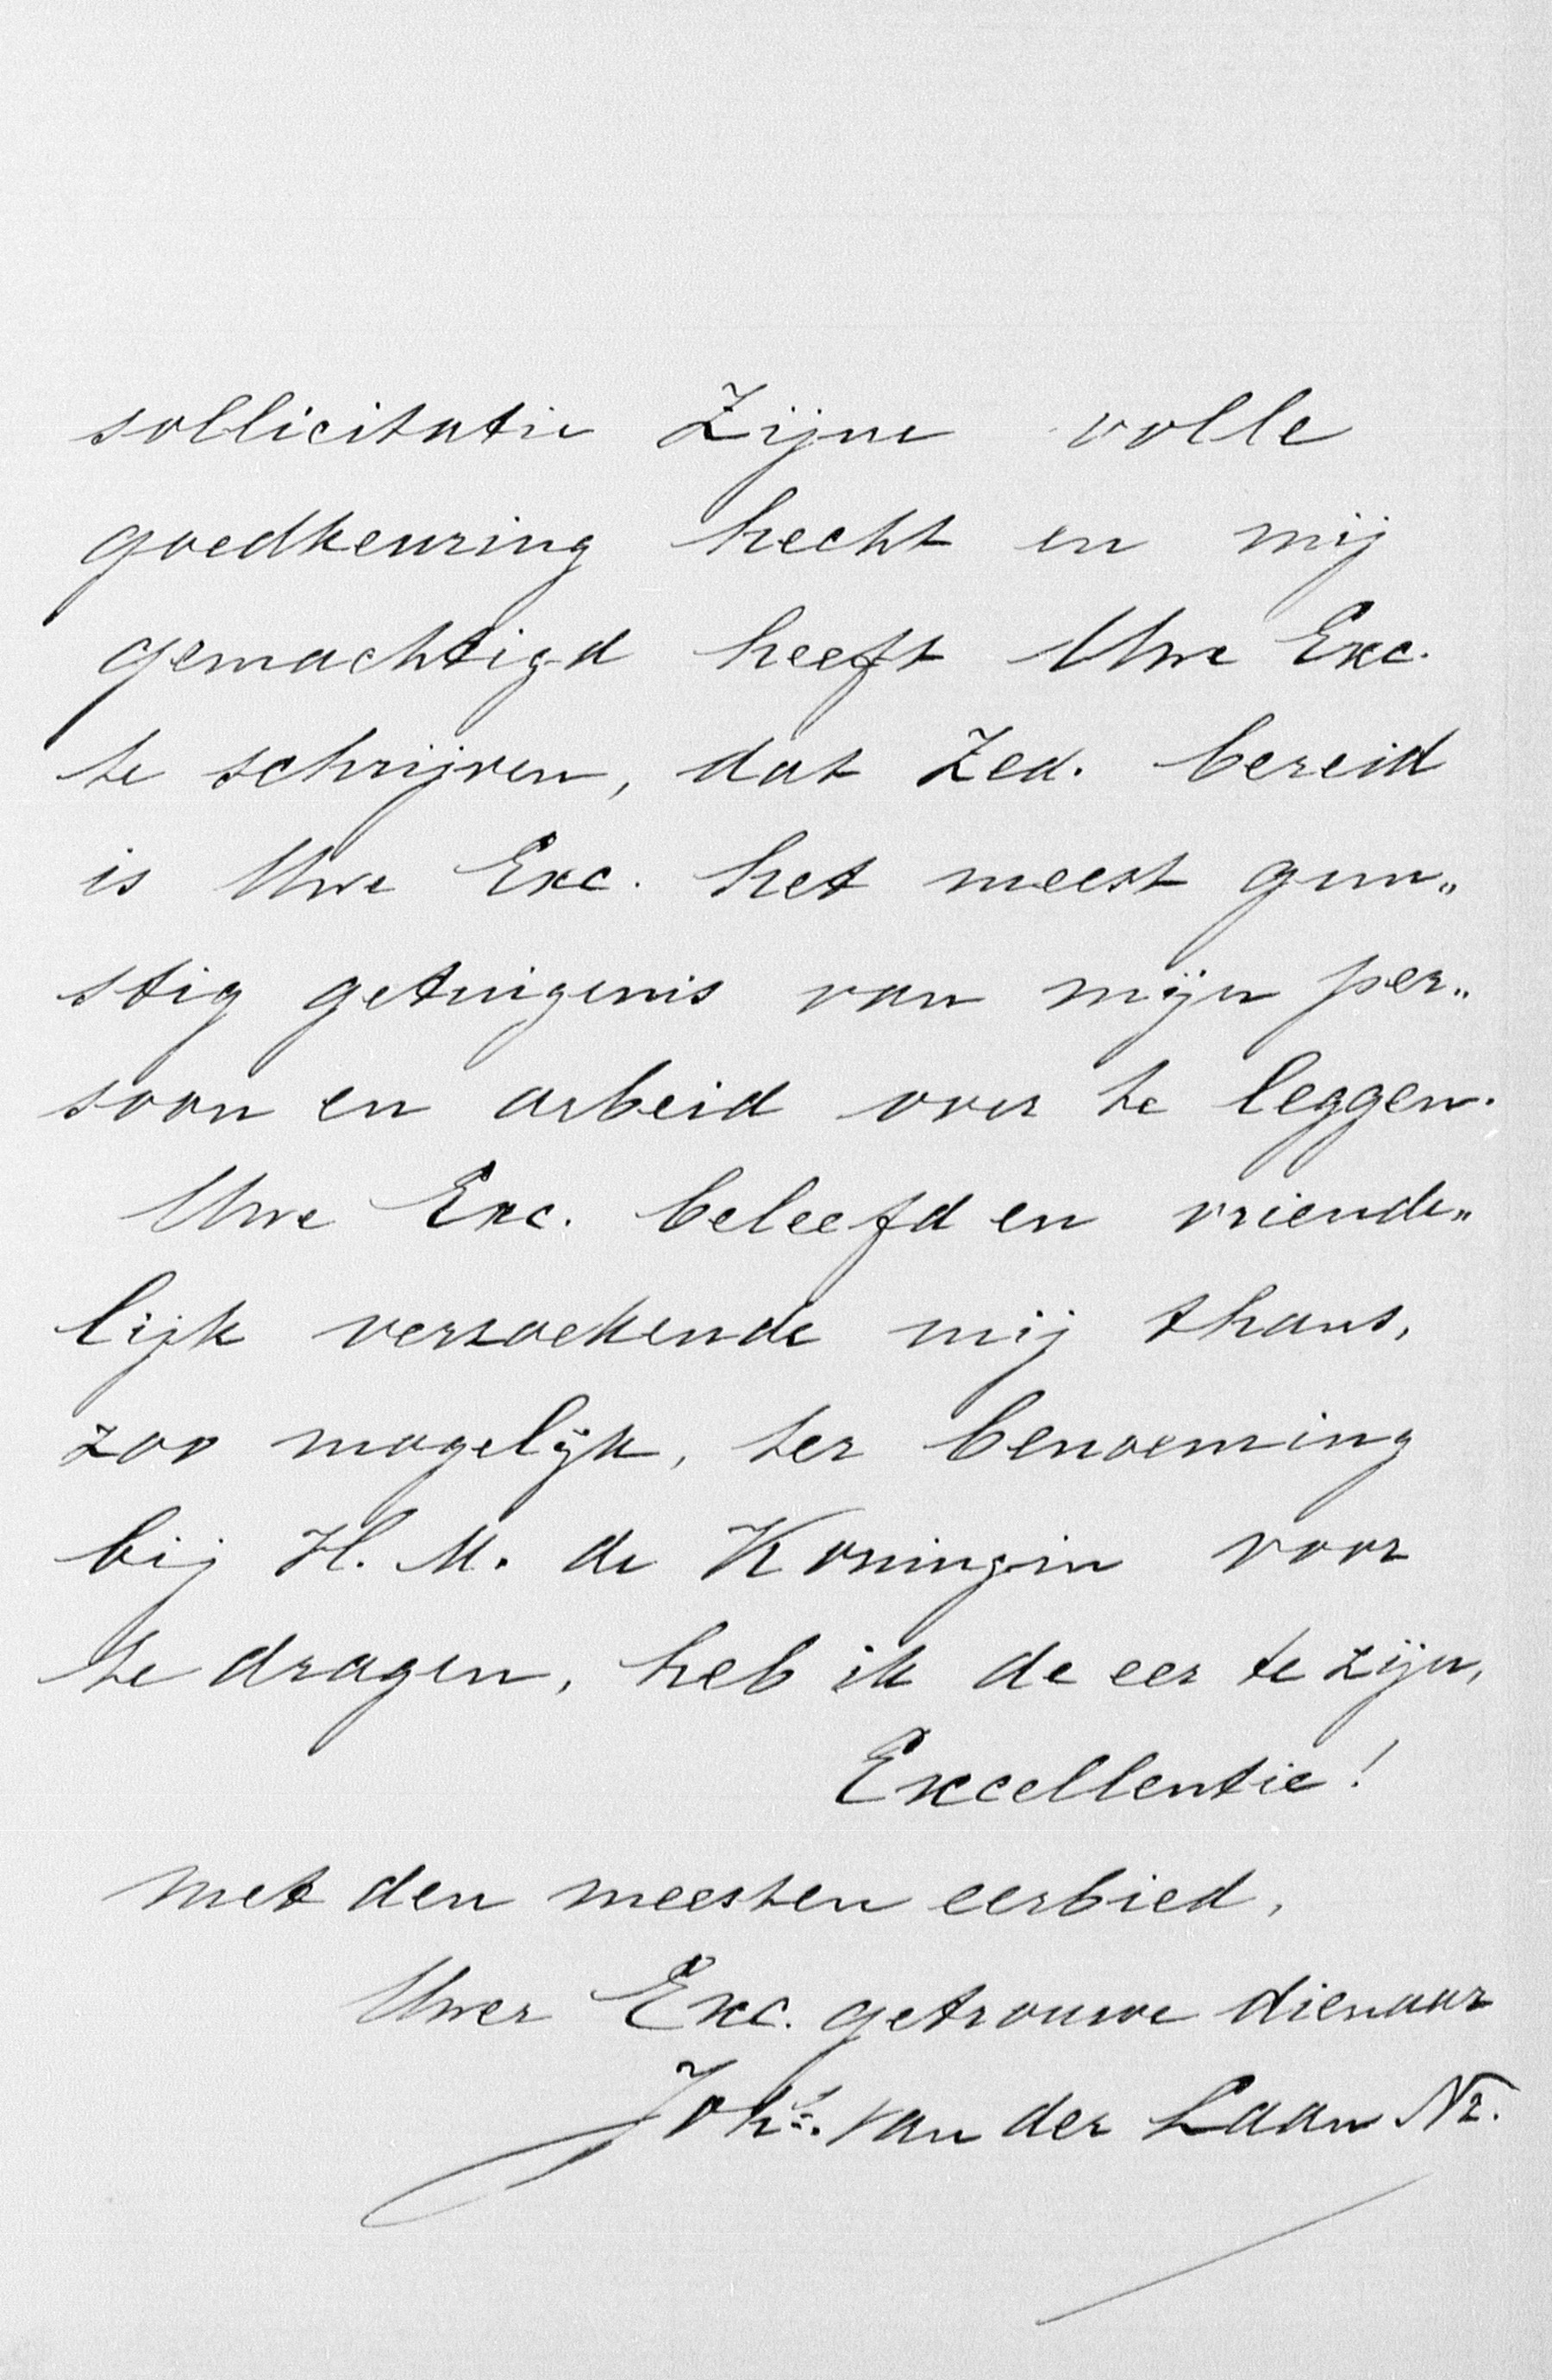 sollicitatie Zijne volle
goedkeuring hecht en mij
gemachtigd heeft Uwe Exc.
te schrijven, dat ZEd. bereid
is Uwe Exc. het meest gun„
stig getuigenis van mijn per„
soon en arbeid over te leggen.
Uwe Exc. beleefd en vriende„
lijk verzoekende mij thans,
zoo mogelijk, ter benoeming
bij H. M. de Koningin voor
te dragen, heb ik de eer te zijn,
Excellentie!
met den meesten eerbied,
Uwer Exc. getrouwe dienaar
Johs. van der Laan Nz.